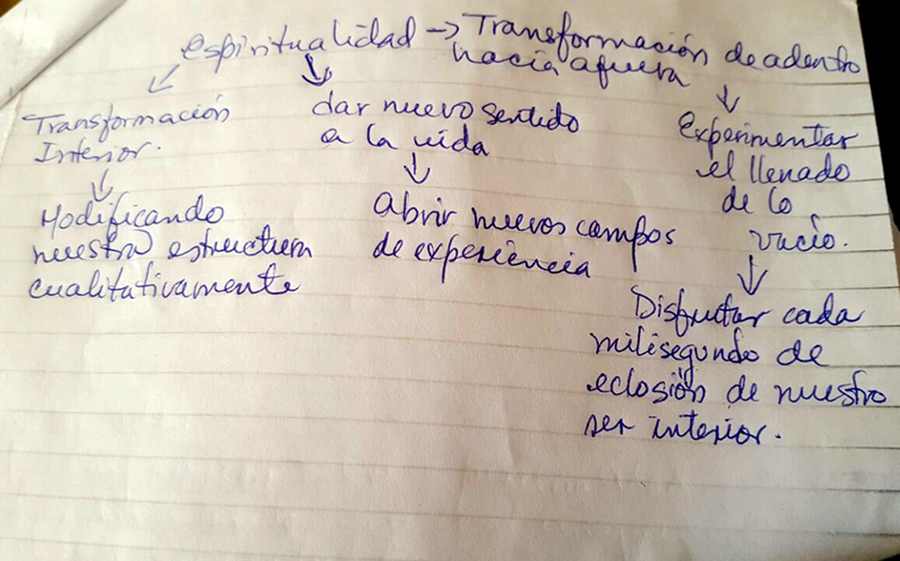 espiritualidad → Transformación de adentro
hacia afuera
Transformación
Interior.
Modificando
nuestra estructura
cualitativamente
dar nuevo sentido
a la vida
Abrir nuevos campos
de experiencia
Experimentar
el llenado
de lo
vacío.
Disfrutar cada
milisegundo de
eclosión de nuestro
ser interior.